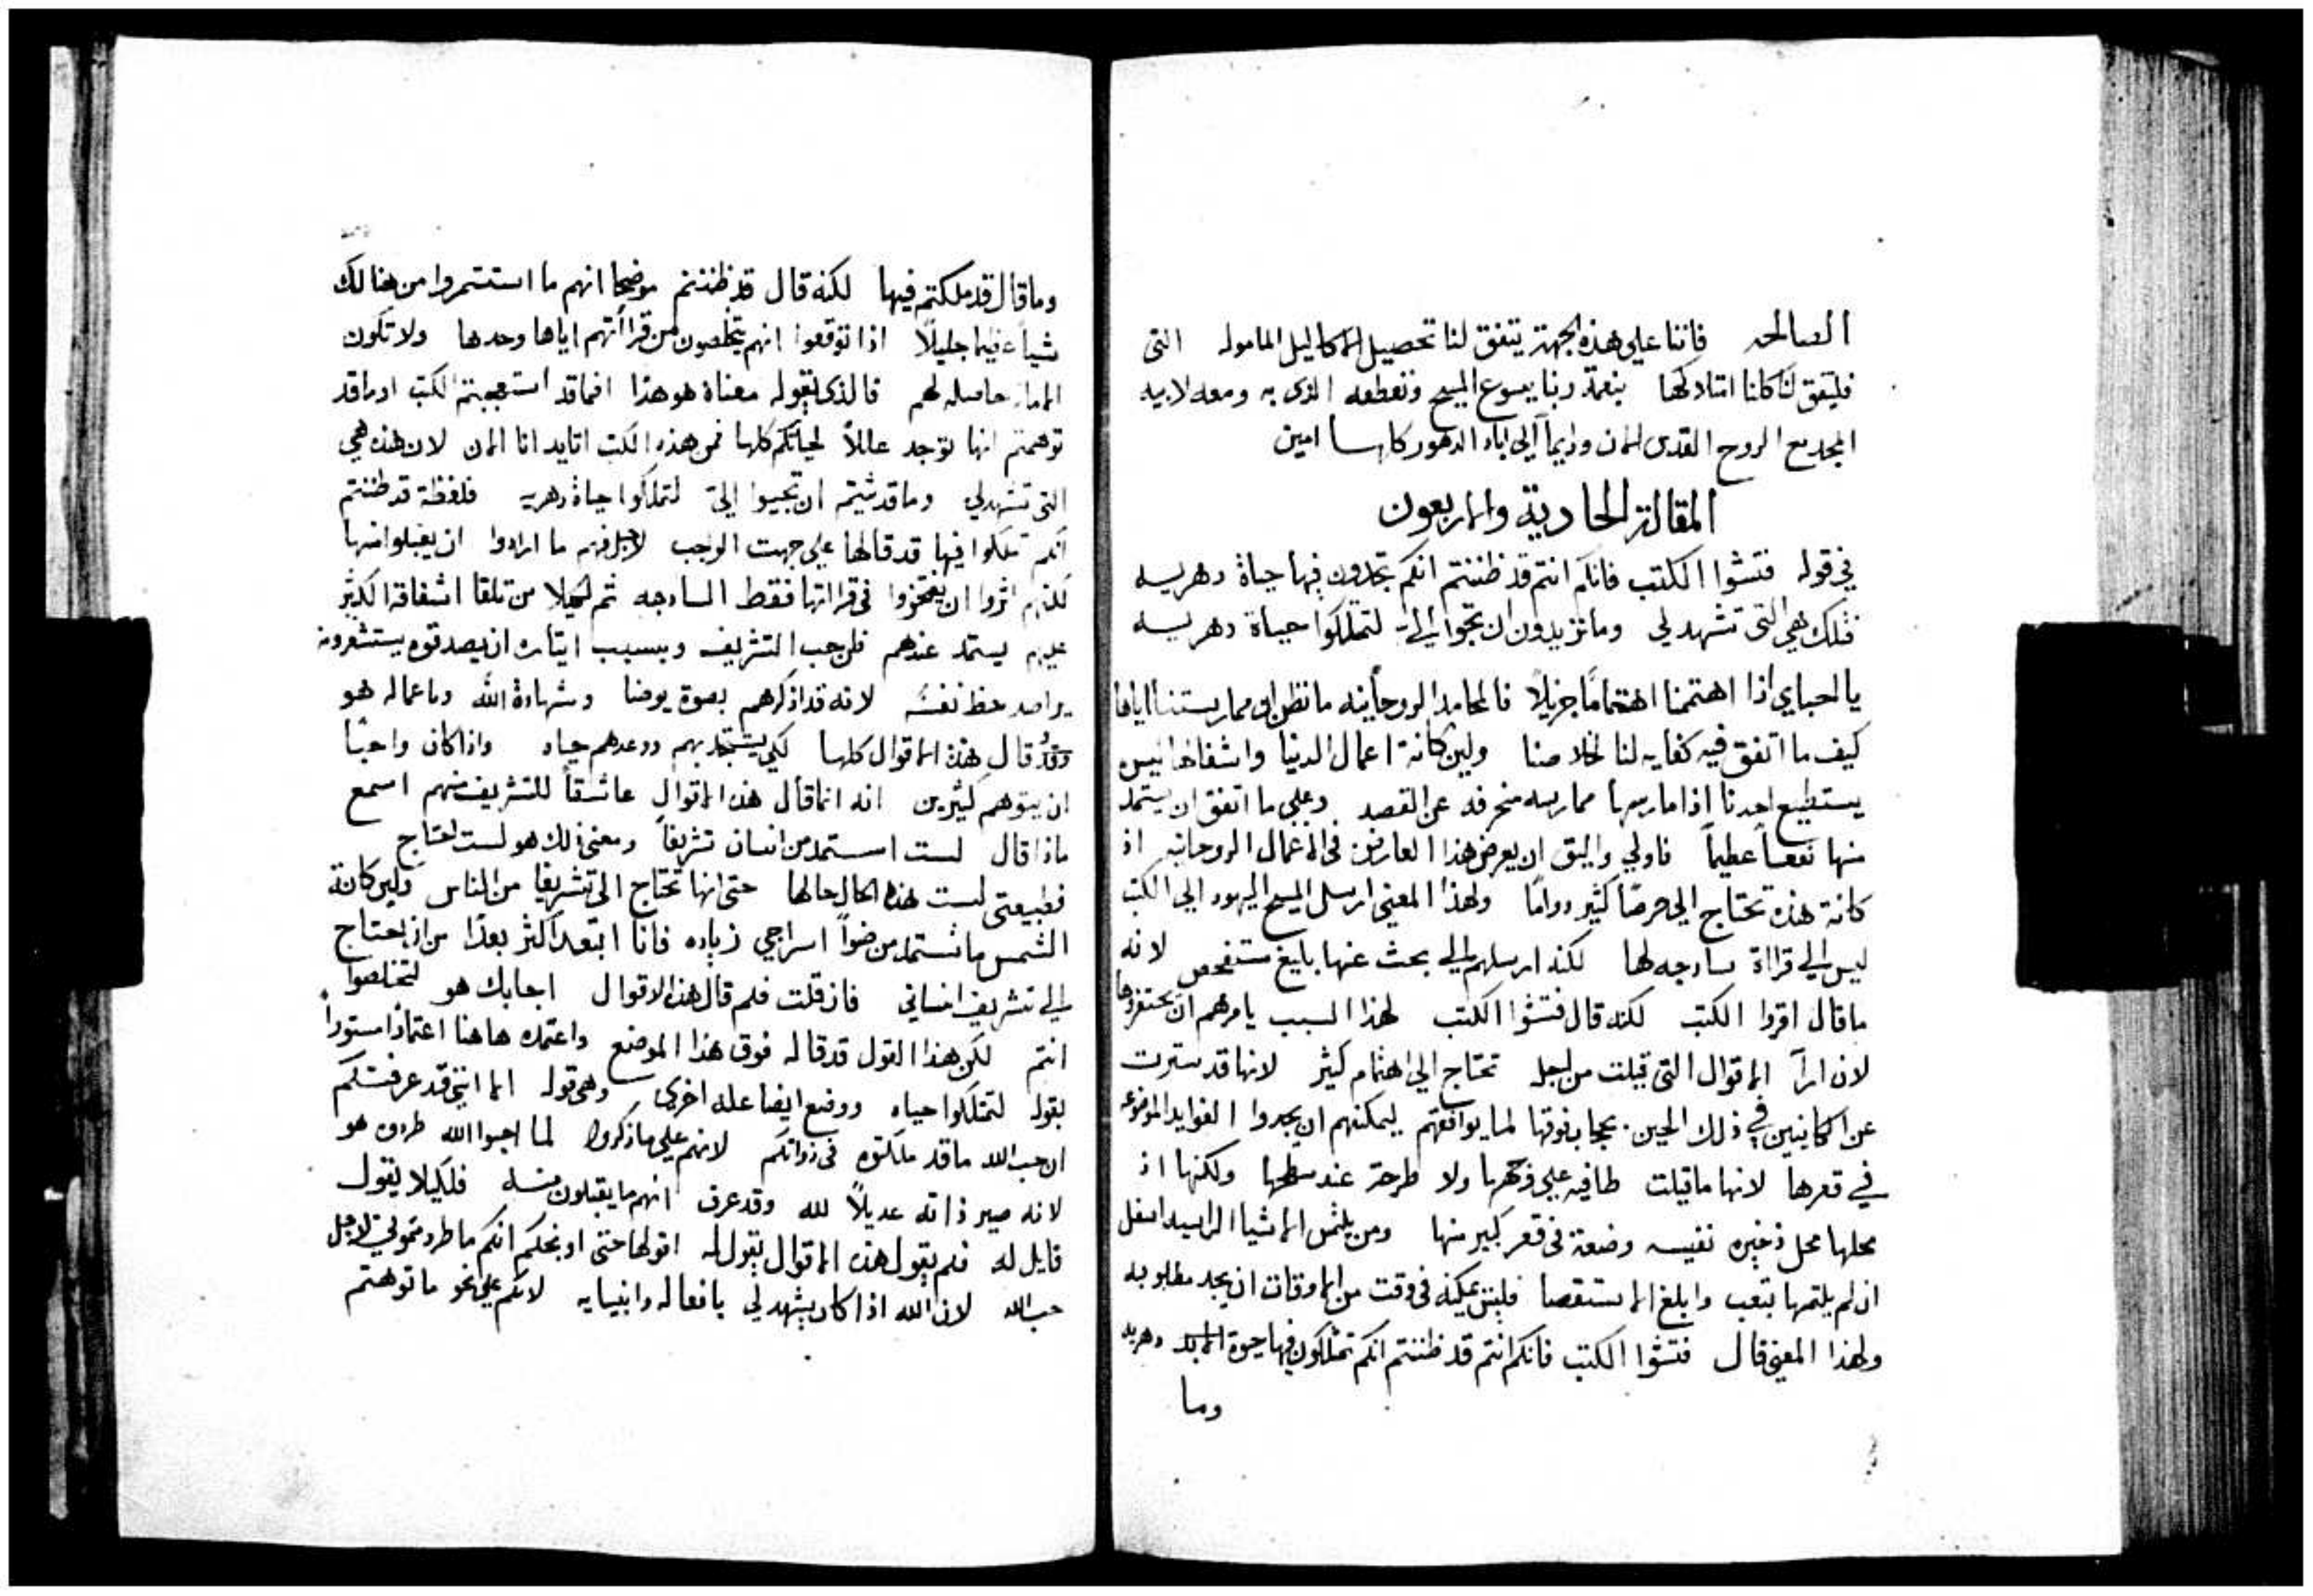 الصالحه فاننا علي هذه الجهة يتفق لنا تحصيل الاكاليل المامولة التي
فليتفق لنا كلنا امتلاكها بنعمة ربنا يسوع المسيح وتعطفه الذي به ومعه لابيه
المجد مع الروح القدس الان ودايماً الي اباد الدهور كلها امين
المقالة الحادية والاربعون
في قوله فتشوا الكتب فانكم انتم قد ظننتم انكم تجدون فيها حياة دهريه
فتلك هي التي تشهد لي وما تريدون ان تجوا اليّ لتملكوا حياة دهريه
يا احباي اذا اهتممنا اهتماماً جزيلاً فالمحامد الروحانيه ما نظن ان ممارستنا اياها
كيف ما اتفق فيه كفايه لنا لخلاصنا ولين كانة اعمال الدنيا واشغالها ليس
يستطيع احدنا اذا مارسها ممارسه منحرفه عن القصد وعلي ما اتفق ان يستمد
منها نفعاً عظيماً فاولي واليق ان يعرض هذا العارض في الاعمال الروحانيه اذ
كانة هذه تحتاج الي حرصاً كثير دواماً ولهذا المعني ارسل المسيح اليهود الي الكتب
ليس الي قرااة ساذجه لها لكنه ارسلهم الي بحث عنها بليغ مستفحص لانه
ما قال اقروا الكتب لكنه قال فتشوا الكتب لهذا السبب يامرهم ان يحتفروها
لان ارآ الاقوال التي قيلت من اجله تحتاج الي اهتمام كثير لانها قد سترت
عن الكاينين في ذلك الحين بحجاب فوقها لما يوافقهم ليمكنهم ان يجدوا الفوايد الموضوعه
في قعرها لانها ما قيلت طافيه علي وجهها ولا طرحة عند سطحها ولكنها اذ
محلها محل ذخيره نفيسه وضعة في قعر كبير منها ومن يلتمس الاشيا الراسيه اسفل
ان لم يلتمها بتعب وابلغ الاستقصا فليس يمكنه في وقت من الاوقات ان يجد مطلوبه
ولهذا المعني قال فتشوا الكتب فانكم انتم قد ظننتم انكم تملكون فيها حيوة الابد دهريه
وما
وما قال قد ملكتم فيها لكنه قال قد ظننتم موضحا انهم ما استثمروا من هنالك
شياً عظيماً جليلاً اذا توقعوا انهم يتخلصون من قراأتهم اياها وحدها ولا تكون
الامانه حاصله لهم فالذي يقوله معناه هو هذا افما قد استعجبتم الكتب اوما قد
توهمتم انها توجد عللاً لحياتكم كلها فمن هذه الكتب اتايد انا الان لان هذه هي
التي تشهد لي وما قد شيتم ان تجيوا اليّ لتملكوا حياة دهريه فلفظة قد ظننتم
انكم تملكوا فيها قد قالها علي جهت الواجب لاجل انهم ما ارادوا ان يقبلوا منها
لكنهم اثروا ان يفتخروا في قراتها فقط الساذجه ثم لكيلا من تلقا اشفاقه الكثير
عليهم يستمد عندهم فلن حب التشريف وبسبب ايثاره ان يصدقوه يستشعرونه
يراصد حظ نفسه لانه قد اذكرهم بصوة يوحنا وشهادة الله وباعماله هو
وقد قال هذه الاقوال كلها لكي يستجذبهم ووعدهم حياه واذا كان واجباً
ان يتوهم كثيرين انه انما قال هذه الاقوال عاشقاً للتشريف منهم اسمع
ماذا قال لست استمد من انسان تشريفاً ومعني ذلك هو لست احتاج
فطبيعتي ليست هذه الحال حالها حتي انها تحتاج الي تشريفا من الناس ولين كانة
الشمس ما تستمد من ضواً سراجي زياده فانا ابتعد اكثر بعدًا من ان احتاج
الي تشريف انساني فان قلت فلم قال هذه الاقوال اجابك هو لتخلصوا
انتم لكن هذا القول قد قاله فوق هذا الموضع واعتمده هاهنا اعتمادًا مستوراً
بقوله لتملكوا حياه ووضع ايضا عله اخري وهي قوله الا انني قد عرفتكم
ان حب الله ما قد ملكتوه في ذواتكم لانهم علي ما ذكروا لما احبوا الله طردوه هو
لانه صير ذاته عديلاً لله وقد عرف انهم ما يقبلون منه فلكيلا يقول
قايل له فلم يقول هذه الاقوال يقول له اقولها حتي اوبخكم انكم ما طردتموني لاجل
حب الله لان الله اذا كان يشهد لي بافعاله وانبيايه لانكم علي نحو ما توهمتم